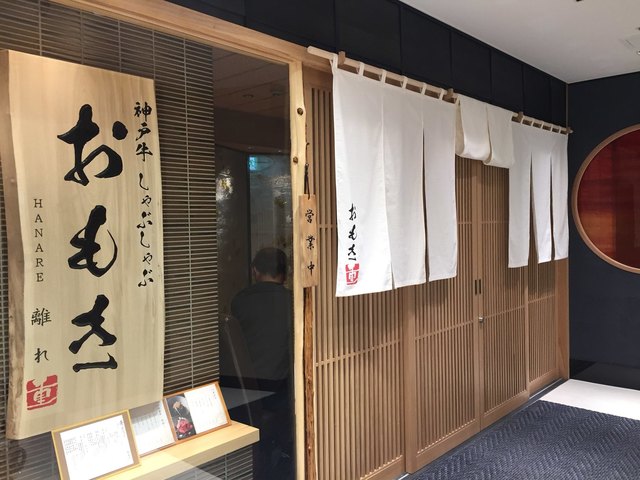 神戸牛しゃぶしゃぶ
おもき
HANARE
離れ
重
営業中
おもき
重